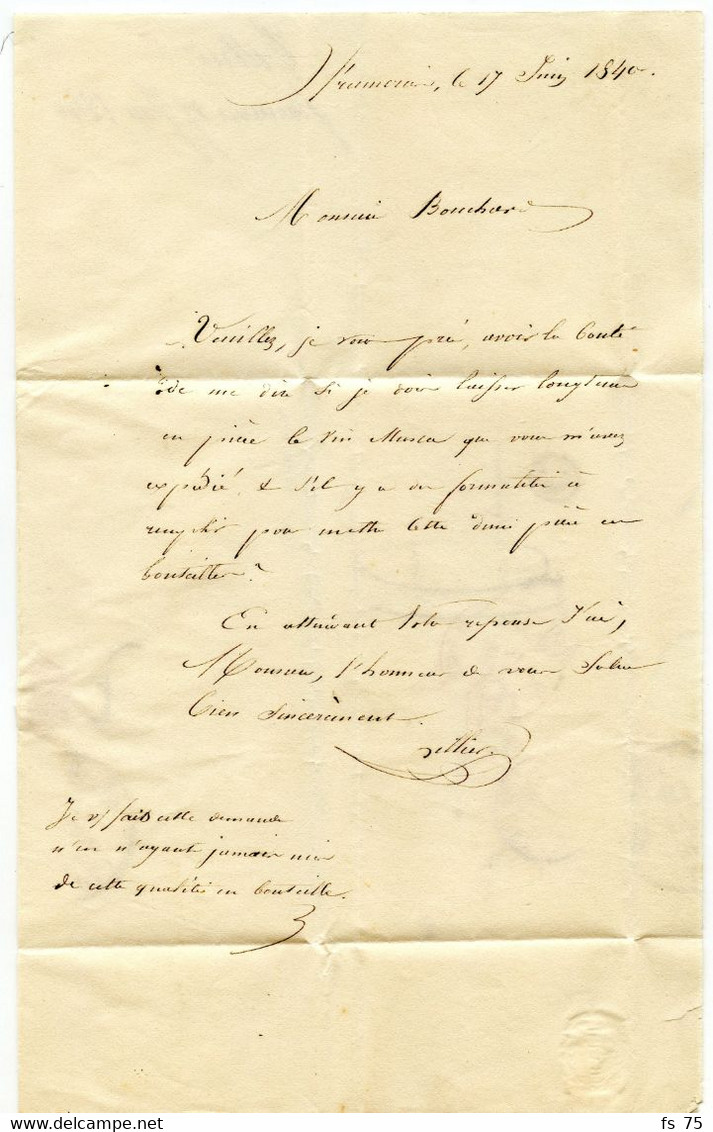 le 17 Juin 1840.
Monsieur Bouchard
Veuillez, je vous prie, avoir la bonté
de me dire si je dois laisser longtems
en pièce le vin Muscat que vous m'avez
expédié, & s'il y a des formalités à
remplir pour mettre cette demi pièce en
bouteilles.
En attendant Votre reponse J'ai,
Monsieur, l'honneur de vous Saluer
bien sincèrement.
Je v/ fais cette demande
n'en n'ayant jamais mis
de cette qualité en bouteille.
fs 75